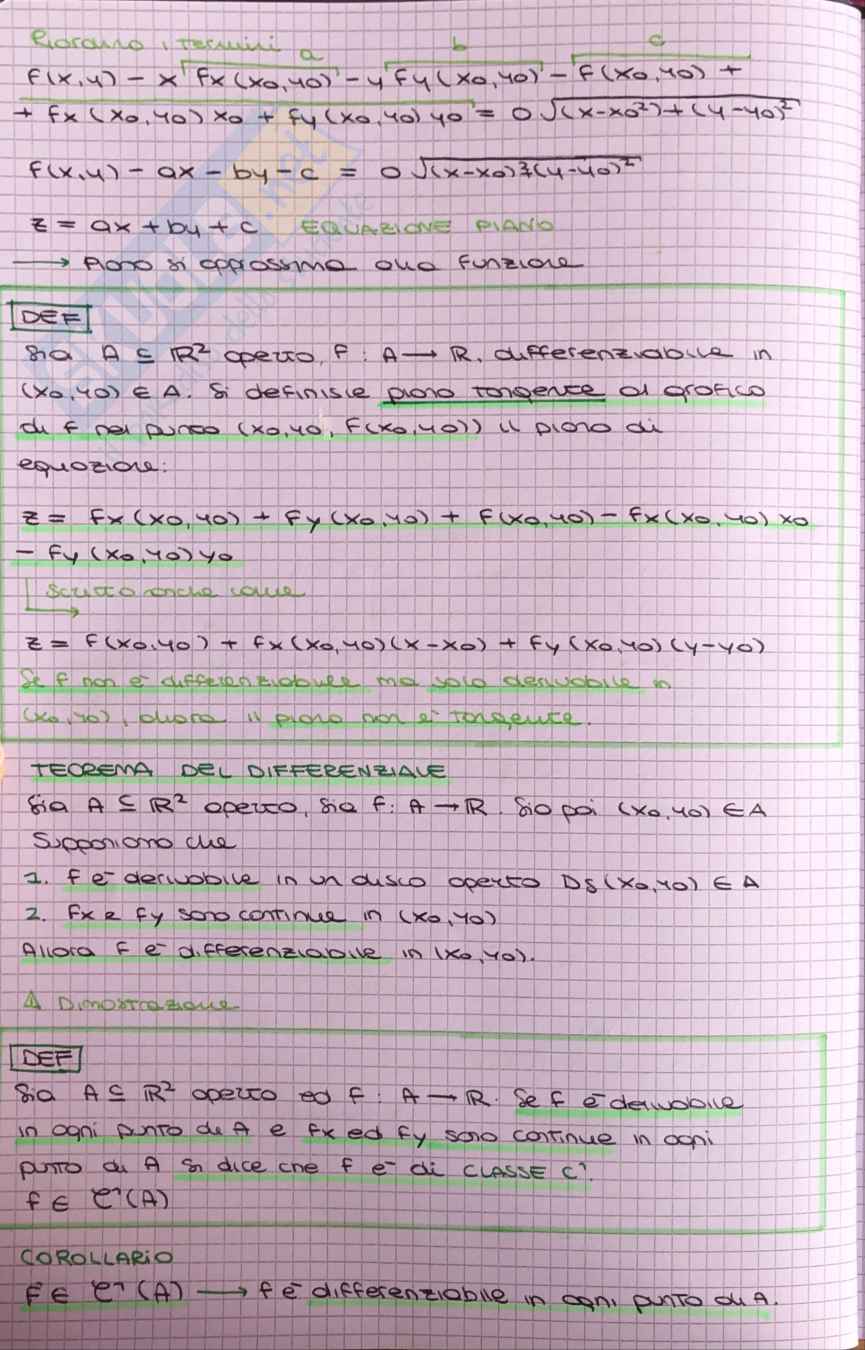 Riordino i termini a b c
f(x,y) - x fx(x0,y0) - y fy(x0,y0) - f(x0,y0) +
+ fx(x0,y0)x0 + fy(x0,y0)y0 = o√(x-x0²)+(y-y0)²
f(x,y) - ax - by - c = o√(x-x0)²+(y-y0)²
z = ax + by + c EQUAZIONE PIANO
⟶ piano si approssima alla funzione
DEF
Sia A ⊆ ℝ² aperto, f : A → ℝ, differenziabile in
(x0,y0) ∈ A. Si definisce piano tangente al grafico
di f nel punto (x0,y0, f(x0,y0)) il piano di
equazione:
z = fx(x0,y0) + fy(x0,y0) + f(x0,y0) - fx(x0,y0)x0
- fy(x0,y0)y0
scritto anche come
z = f(x0,y0) + fx(x0,y0)(x-x0) + fy(x0,y0)(y-y0)
Se f non è differenziabile ma solo derivabile in
(x0,y0), allora il piano non è tangente.
TEOREMA DEL DIFFERENZIALE
Sia A ⊆ ℝ² aperto, sia f: A → ℝ. Sia poi (x0,y0) ∈ A
Supponiamo che
1. f è derivabile in un disco aperto Dδ(x0,y0) ∈ A
2. fx e fy sono continue in (x0,y0)
Allora f è differenziabile in (x0,y0).
Δ Dimostrazione
DEF
Sia A ⊆ ℝ² aperto ed f : A → ℝ. Se f è derivabile
in ogni punto di A e fx ed fy sono continue in ogni
punto di A si dice che f è di CLASSE C¹.
f ∈ C¹(A)
COROLLARIO
f ∈ C¹(A) ⟶ f è differenziabile in ogni punto di A.